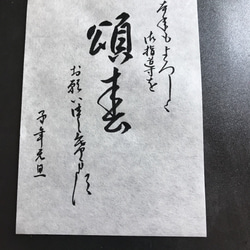 頌春
本年もよろしく
御指導を
お願い申し上げます
子年元旦